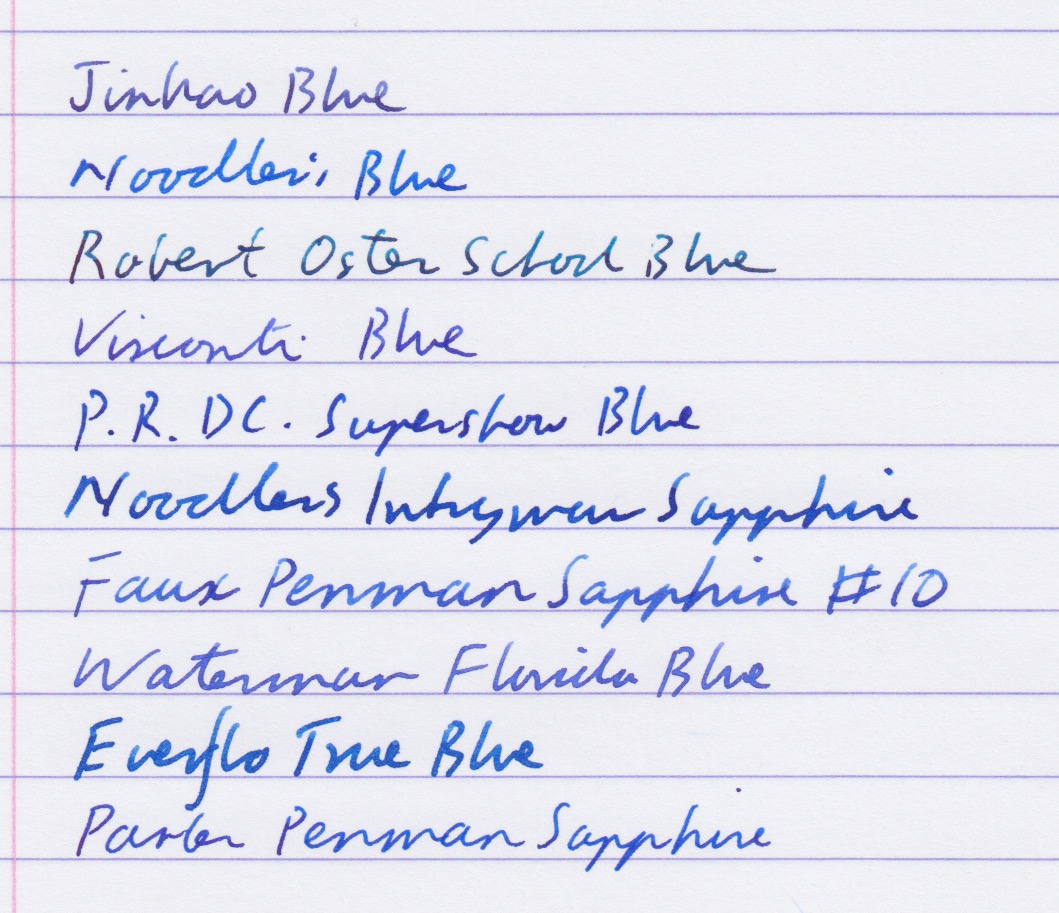 Jinhao Blue
Noodler's Blue
Robert Oster School Blue
Visconti Blue
P.R. DC. Supershow Blue
Noodlers Sapphire
Faux Penman Sapphire #10
Waterman Florida Blue
Everflo True Blue
Parker Penman Sapphire